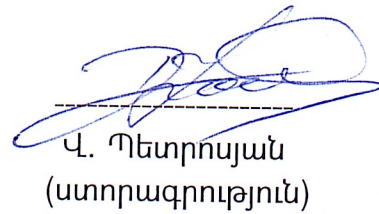 Վ. Պետրոսյան
(ստորագրություն)